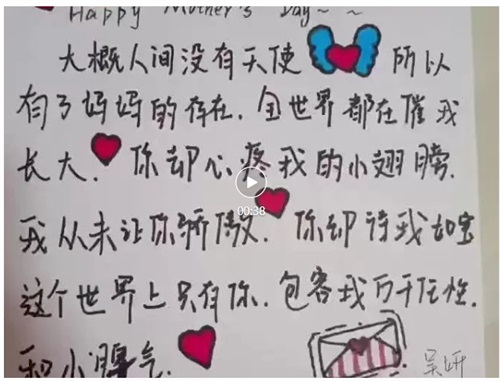 Happy Mother's Day~ ~
大概人间没有天使 所以
有了妈妈的存在.全世界都在催我
长大. 你却心疼我的小翅膀.
00:38
我从未让你骄傲. 你却待我如宝
这个世界上只有你.包容我万千任性.
和小脾气.
吴妍